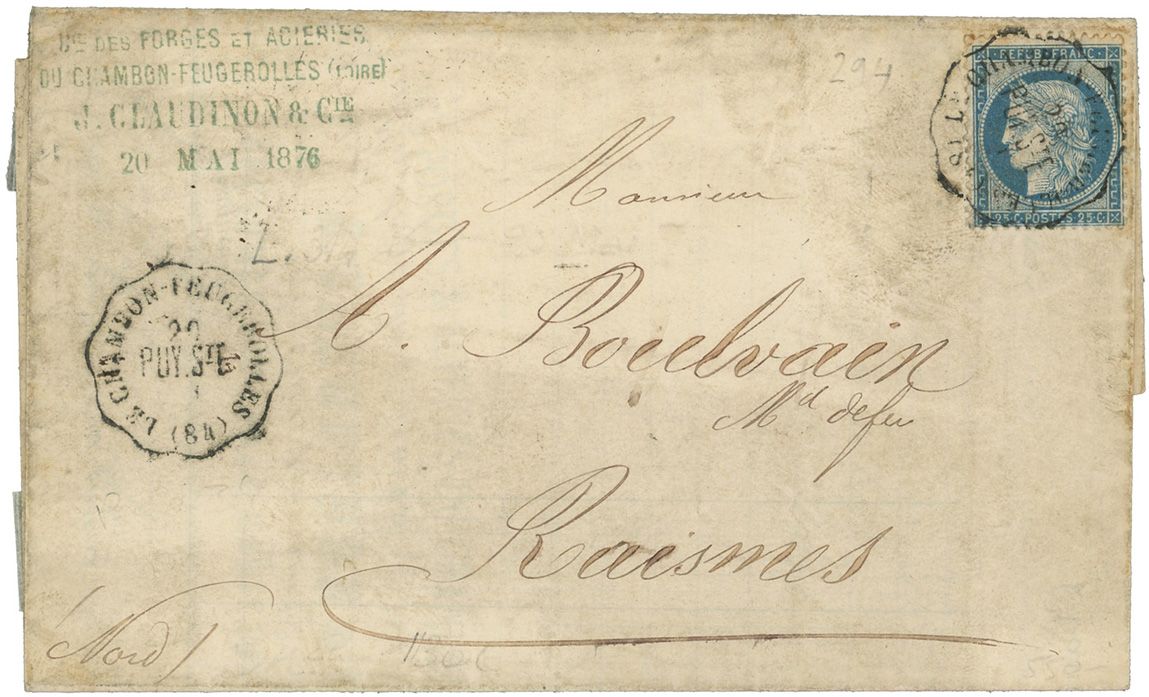 CIE DES FORGES ET ACIERIES
DU CHAMBON-FEUGEROLLES (LOIRE)
J. CLAUDINON & CIE
20 MAI 1876
294
REPUB. FRANC.
25 C. POSTES 25 C.
Monsieur
A. Boulvain
Md de fer
Raismes
(Nord)
LE CHAMBON-FEUGEROLLES (84)
20
PUY.STE